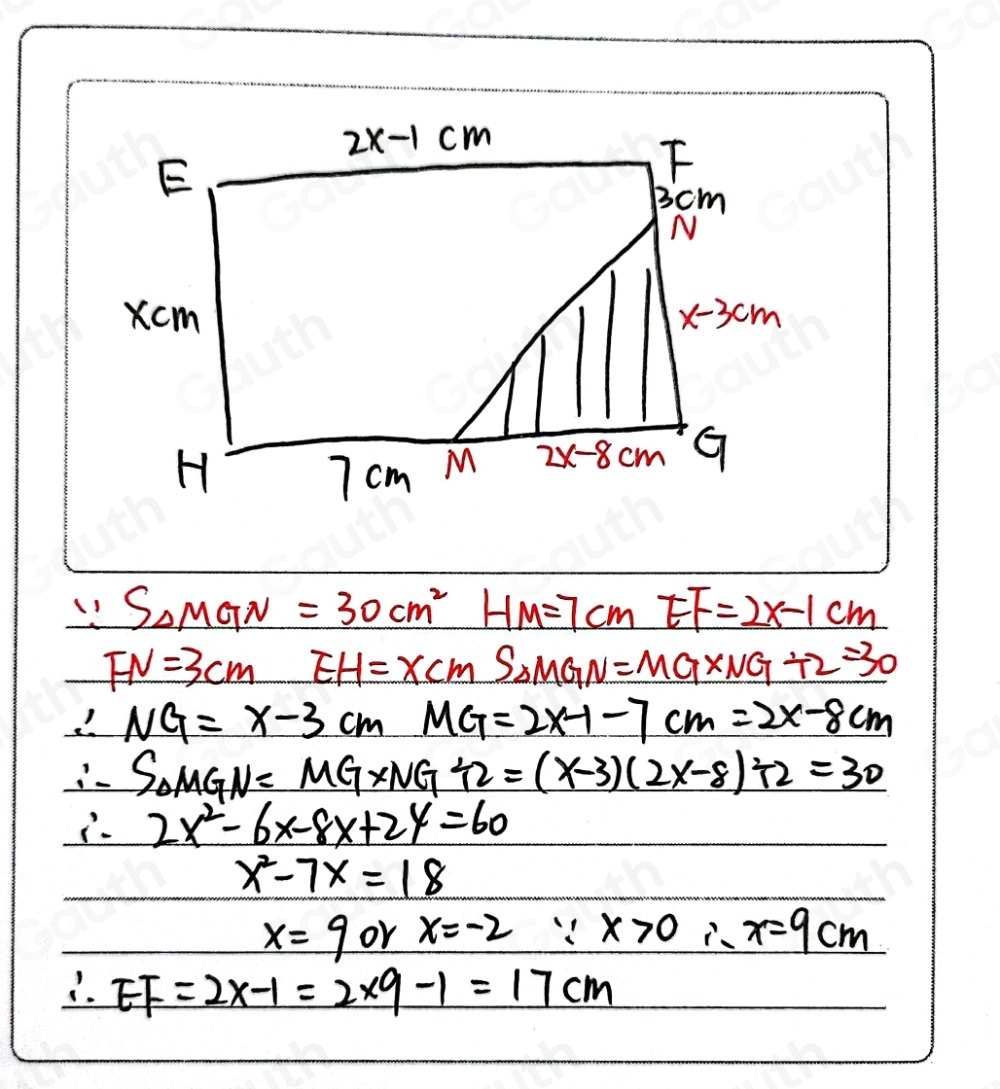 2x-1 cm
E
F
3cm
N
xcm
x-3cm
H
7cm
M
2x-8cm
G
∵ S△MGN = 30cm² HM=7cm EF=2x-1cm
FN=3cm EH=xcm S△MGN=MG×NG÷2=30
∴ NG= x-3 cm MG=2x-1-7 cm =2x-8cm
∴ S△MGN= MG×NG÷2=(x-3)(2x-8)÷2=30
∴ 2x²-6x-8x+24=60
x²-7x=18
x=9 or x=-2 ∵ x>0 ∴ x=9cm
∴ EF=2x-1=2×9-1=17cm
Gauth